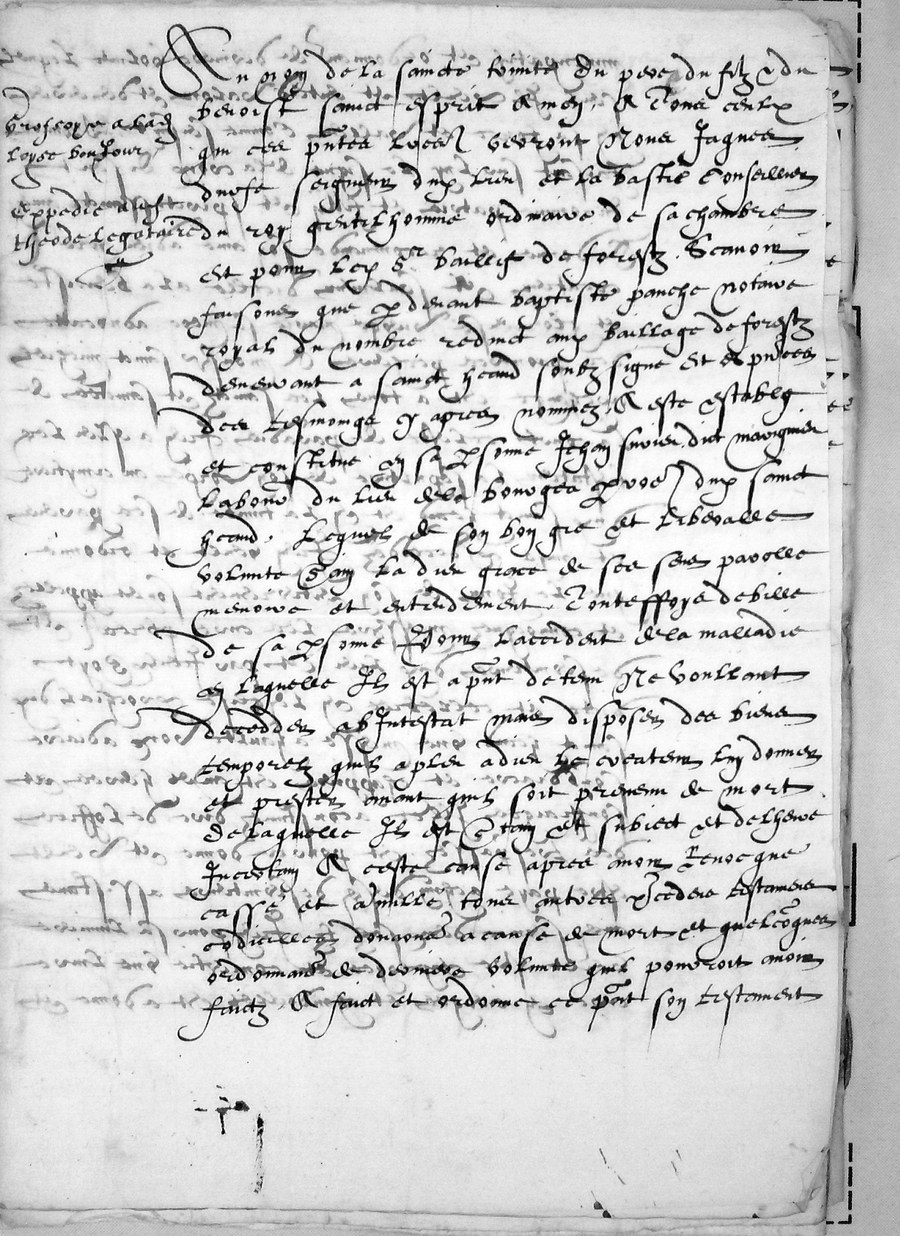 Au nom de la saincte trinite du pere du filz & du
benoist sainct esprit Amen. A Tous ceulx
qui ces pntes lres verront Nous Jaques
durfe seigneur dud lieu et la bastie Conseiller
du roy gentilhomme ordinaire de sa chambre
et pour led sr bailly de forestz. Scavoir
faisons que p devant baptiste panche notaire
royal du nombre reduict aux bailliage de forestz
demeurant a sainct heand soubz signe et es pnces
des tesmoings cy apres nommez. A este estably
et constitue en sa psonne Jehan
labour du lieu de la bourgea dud sainct
heand. Lequel de son bon gre et liberalle
volunte la dieu grace de ses sens parolle
memoire et entendement. Toutesfoys debille
de sa psonne Pour laccident de la malladie
en laquelle Il est a pnt detenu Ne voullant
decedder abIntestat mais disposer des biens
temporelz quil a pleu a dieu le createur luy donner
et prester avant quil soit prevenu de mort
de laquelle Il est ctain et subiect et de lheure
Incertain A ceste cause apres avoir Revocque
casse et anulle tous autres pcedens testamens
codicilles donaons a cause de mort et quelconques
ordonnans de derniere volunte quil pourroit avoir
faictz. A faict et ordonne ce pnt son testament
Grossoye a lad
loyse bonJour
expedie a
theode legataire